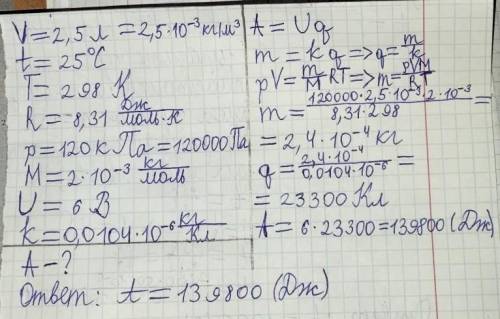 V = 2,5 л = 2,5·10⁻³ кг/м³
t = 25°C
T = 298 К
R = 8,31 Дж/моль·К
p = 120 к Па = 120000 Па
M = 2·10⁻³ кг/моль
U = 6 В
k = 0,0104·10⁻⁶ кг/Кл
A - ?
A = Uq
m = kq => q = m/k
pV = m/M RT => m = pVM/RT
m = 120000·2,5·10⁻³·2·10⁻³/8,31·298 =
= 2,4·10⁻⁴ кг
q = 2,4·10⁻⁴/0,0104·10⁻⁶ =
= 23300 Кл
A = 6·23300 = 139800 (Дж)
Ответ: A = 139800 (Дж)